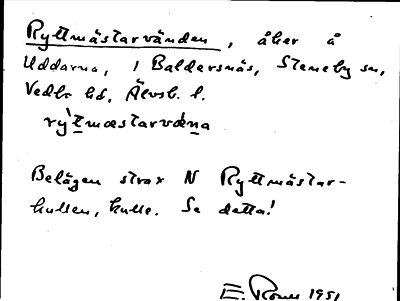 Ryttmästarvänden, åker å
Uddarna, 1 Baldersnäs, Steneby sn,
Vedbo hd, Älvsb. l.
ry`tmæstarvǽna
Belägen strax N Ryttmästar-
kullen, kulle. Se detta!
E. 1951